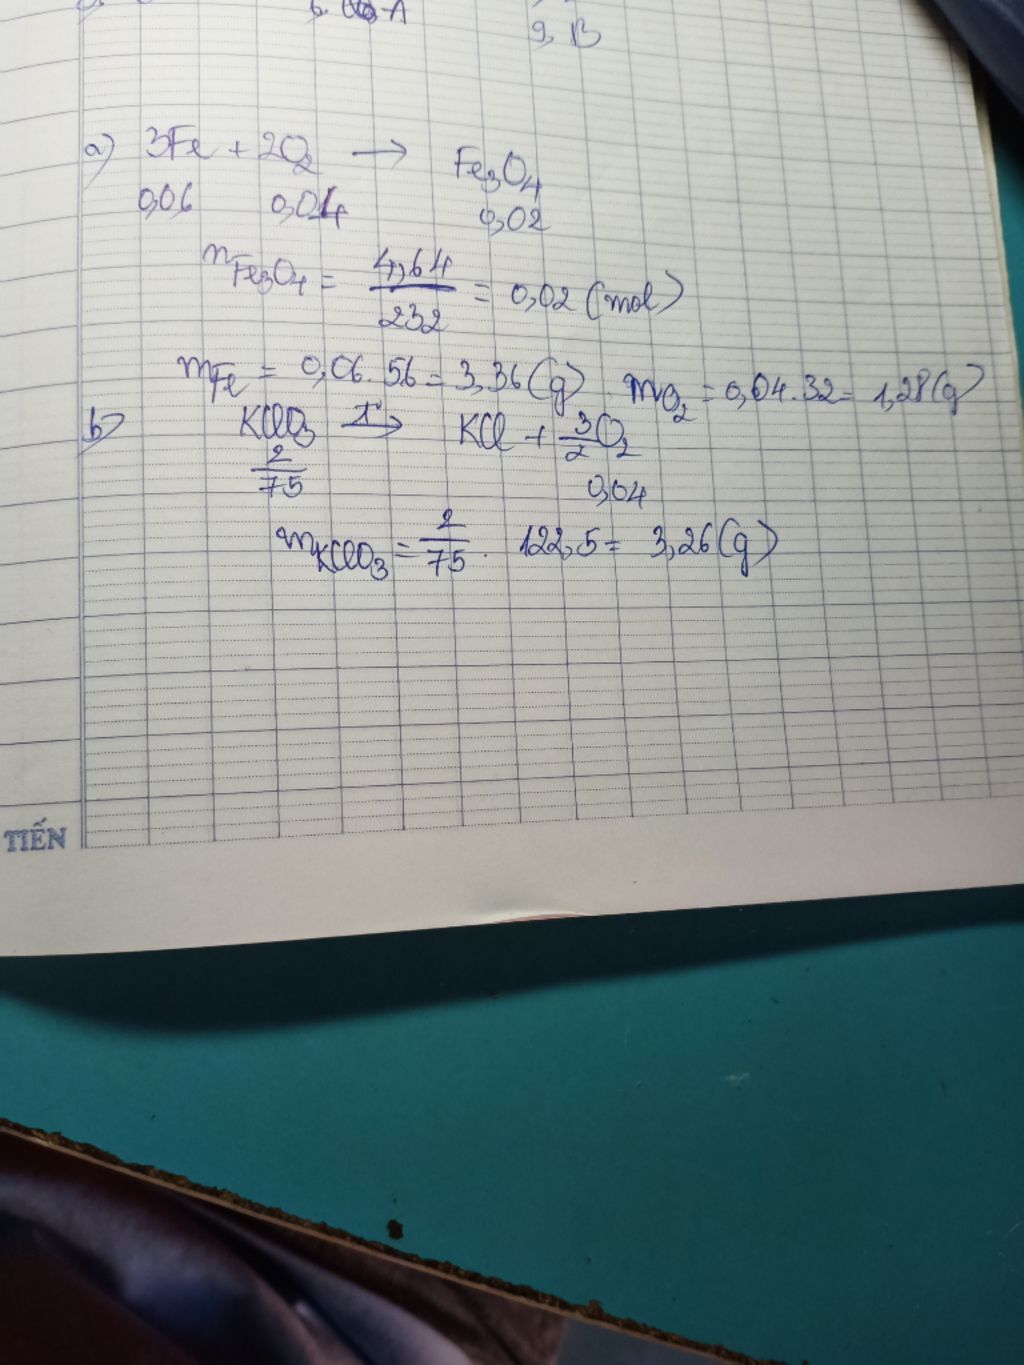 6. A
9, B
a) 3Fe + 2O₂ → Fe₃O₄
0,06 0,04 0,02
nFe₃O₄ = 4,64/232 = 0,02 (mol)
mFe = 0,06.56 = 3,36(g). mO₂ = 0,04.32 = 1,28(g)
b) KClO₃ t°→ KCl + 3/2O₂
2/75 0,04
mKClO₃ = 2/75 . 122,5 = 3,26(g)
TIẾN